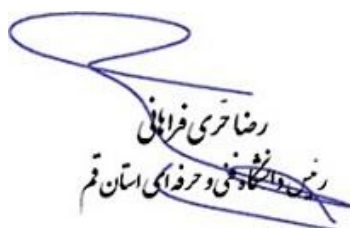 رضا حری فراهانی
رئیس دانشگاه فنی و حرفه ای استان قم